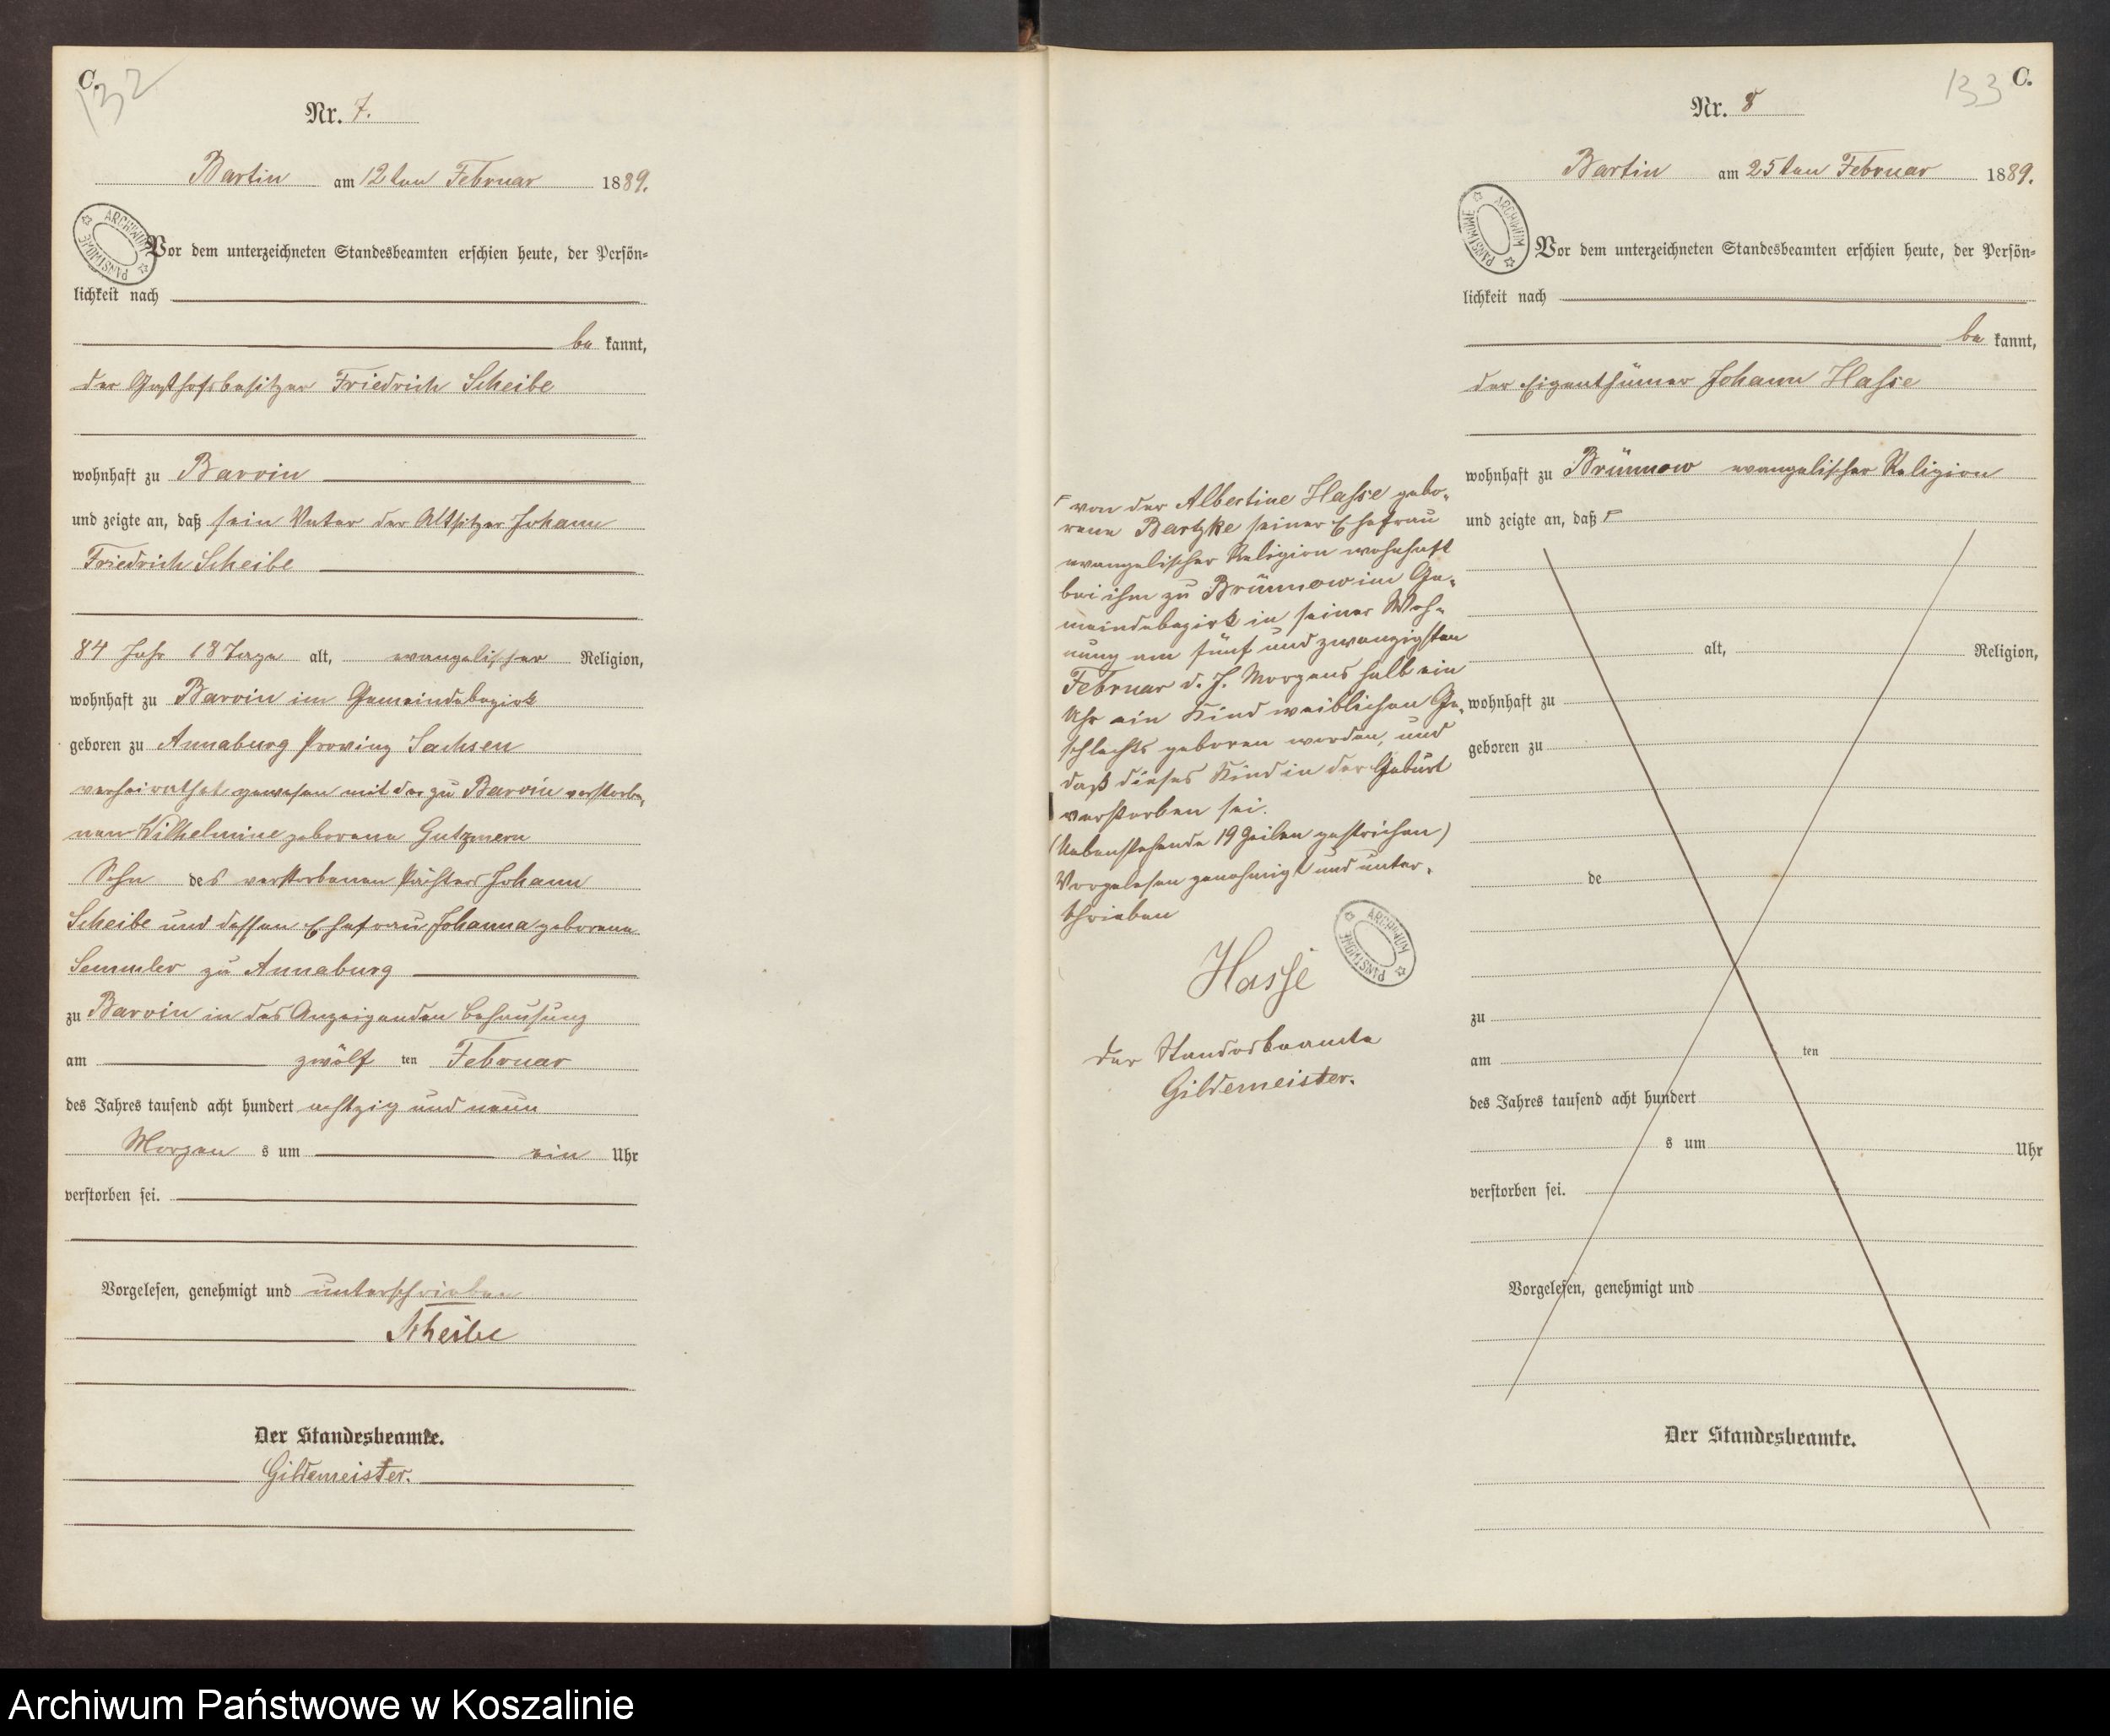 C.
132
Nr. 7.
Bartin am 12ten Februar 1889.
ARCHIWUM PAŃSTWOWE
Vor dem unterzeichneten Standesbeamten erschien heute, der Persön-
lichkeit nach
be kannt,
der Gasthofsbesitzer Friedrich Scheibe
wohnhaft zu Barvin
und zeigte an, daß sein Vater der Altsitzer Johann
Friedrich Scheibe
84 Jahr 18 Tage alt, evangelischer Religion,
wohnhaft zu Barvin im Gemeindebezirk
geboren zu Annaburg Provinz Sachsen
verheirathet gewesen mit der zu Barvin verstorbe-
nen Wilhelmine geborene Gutzmern
Sohn des verstorbenen Pächters Johann
Scheibe und dessen Ehefrau Johanna geborene
Semmler zu Annaburg
zu Barvin in des Anzeigenden Behausung
am zwölf ten Februar
des Jahres tausend acht hundert achtzig und neun
Morgen s um ein Uhr
verstorben sei.
Vorgelesen, genehmigt und unterschrieben
Scheibe
Der Standesbeamte.
Gildemeister.
133 C.
Nr. 8
Bartin am 25ten Februar 1889.
ARCHIWUM PAŃSTWOWE
Vor dem unterzeichneten Standesbeamten erschien heute, der Persön-
lichkeit nach
be kannt,
der Eigenthümer Johann Hasse
wohnhaft zu Brünnow evangelischer Religion
und zeigte an, daß
von der Albertine Hasse gebo-
rene Bartzke seiner Ehefrau
evangelischer Religion wohnhaft
bei ihm zu Brünnow im Ge-
meindebezirk in seiner Woh-
nung am fünf und zwanzigsten
Februar d. J. Morgens halb ein
Uhr ein Kind weiblichen Ge-
schlechts geboren worden, und
daß dieses Kind in der Geburt
verstorben sei.
(Nebenstehende 19 Zeilen gestrichen)
Vorgelesen genehmigt und unter-
schrieben
Hasse
ARCHIWUM PAŃSTWOWE
Der Standesbeamte
Gildemeister.
alt, Religion,
wohnhaft zu
geboren zu
de
zu
am ten
des Jahres tausend acht hundert
s um Uhr
verstorben sei.
Vorgelesen, genehmigt und
Der Standesbeamte.
Archiwum Państwowe w Koszalinie